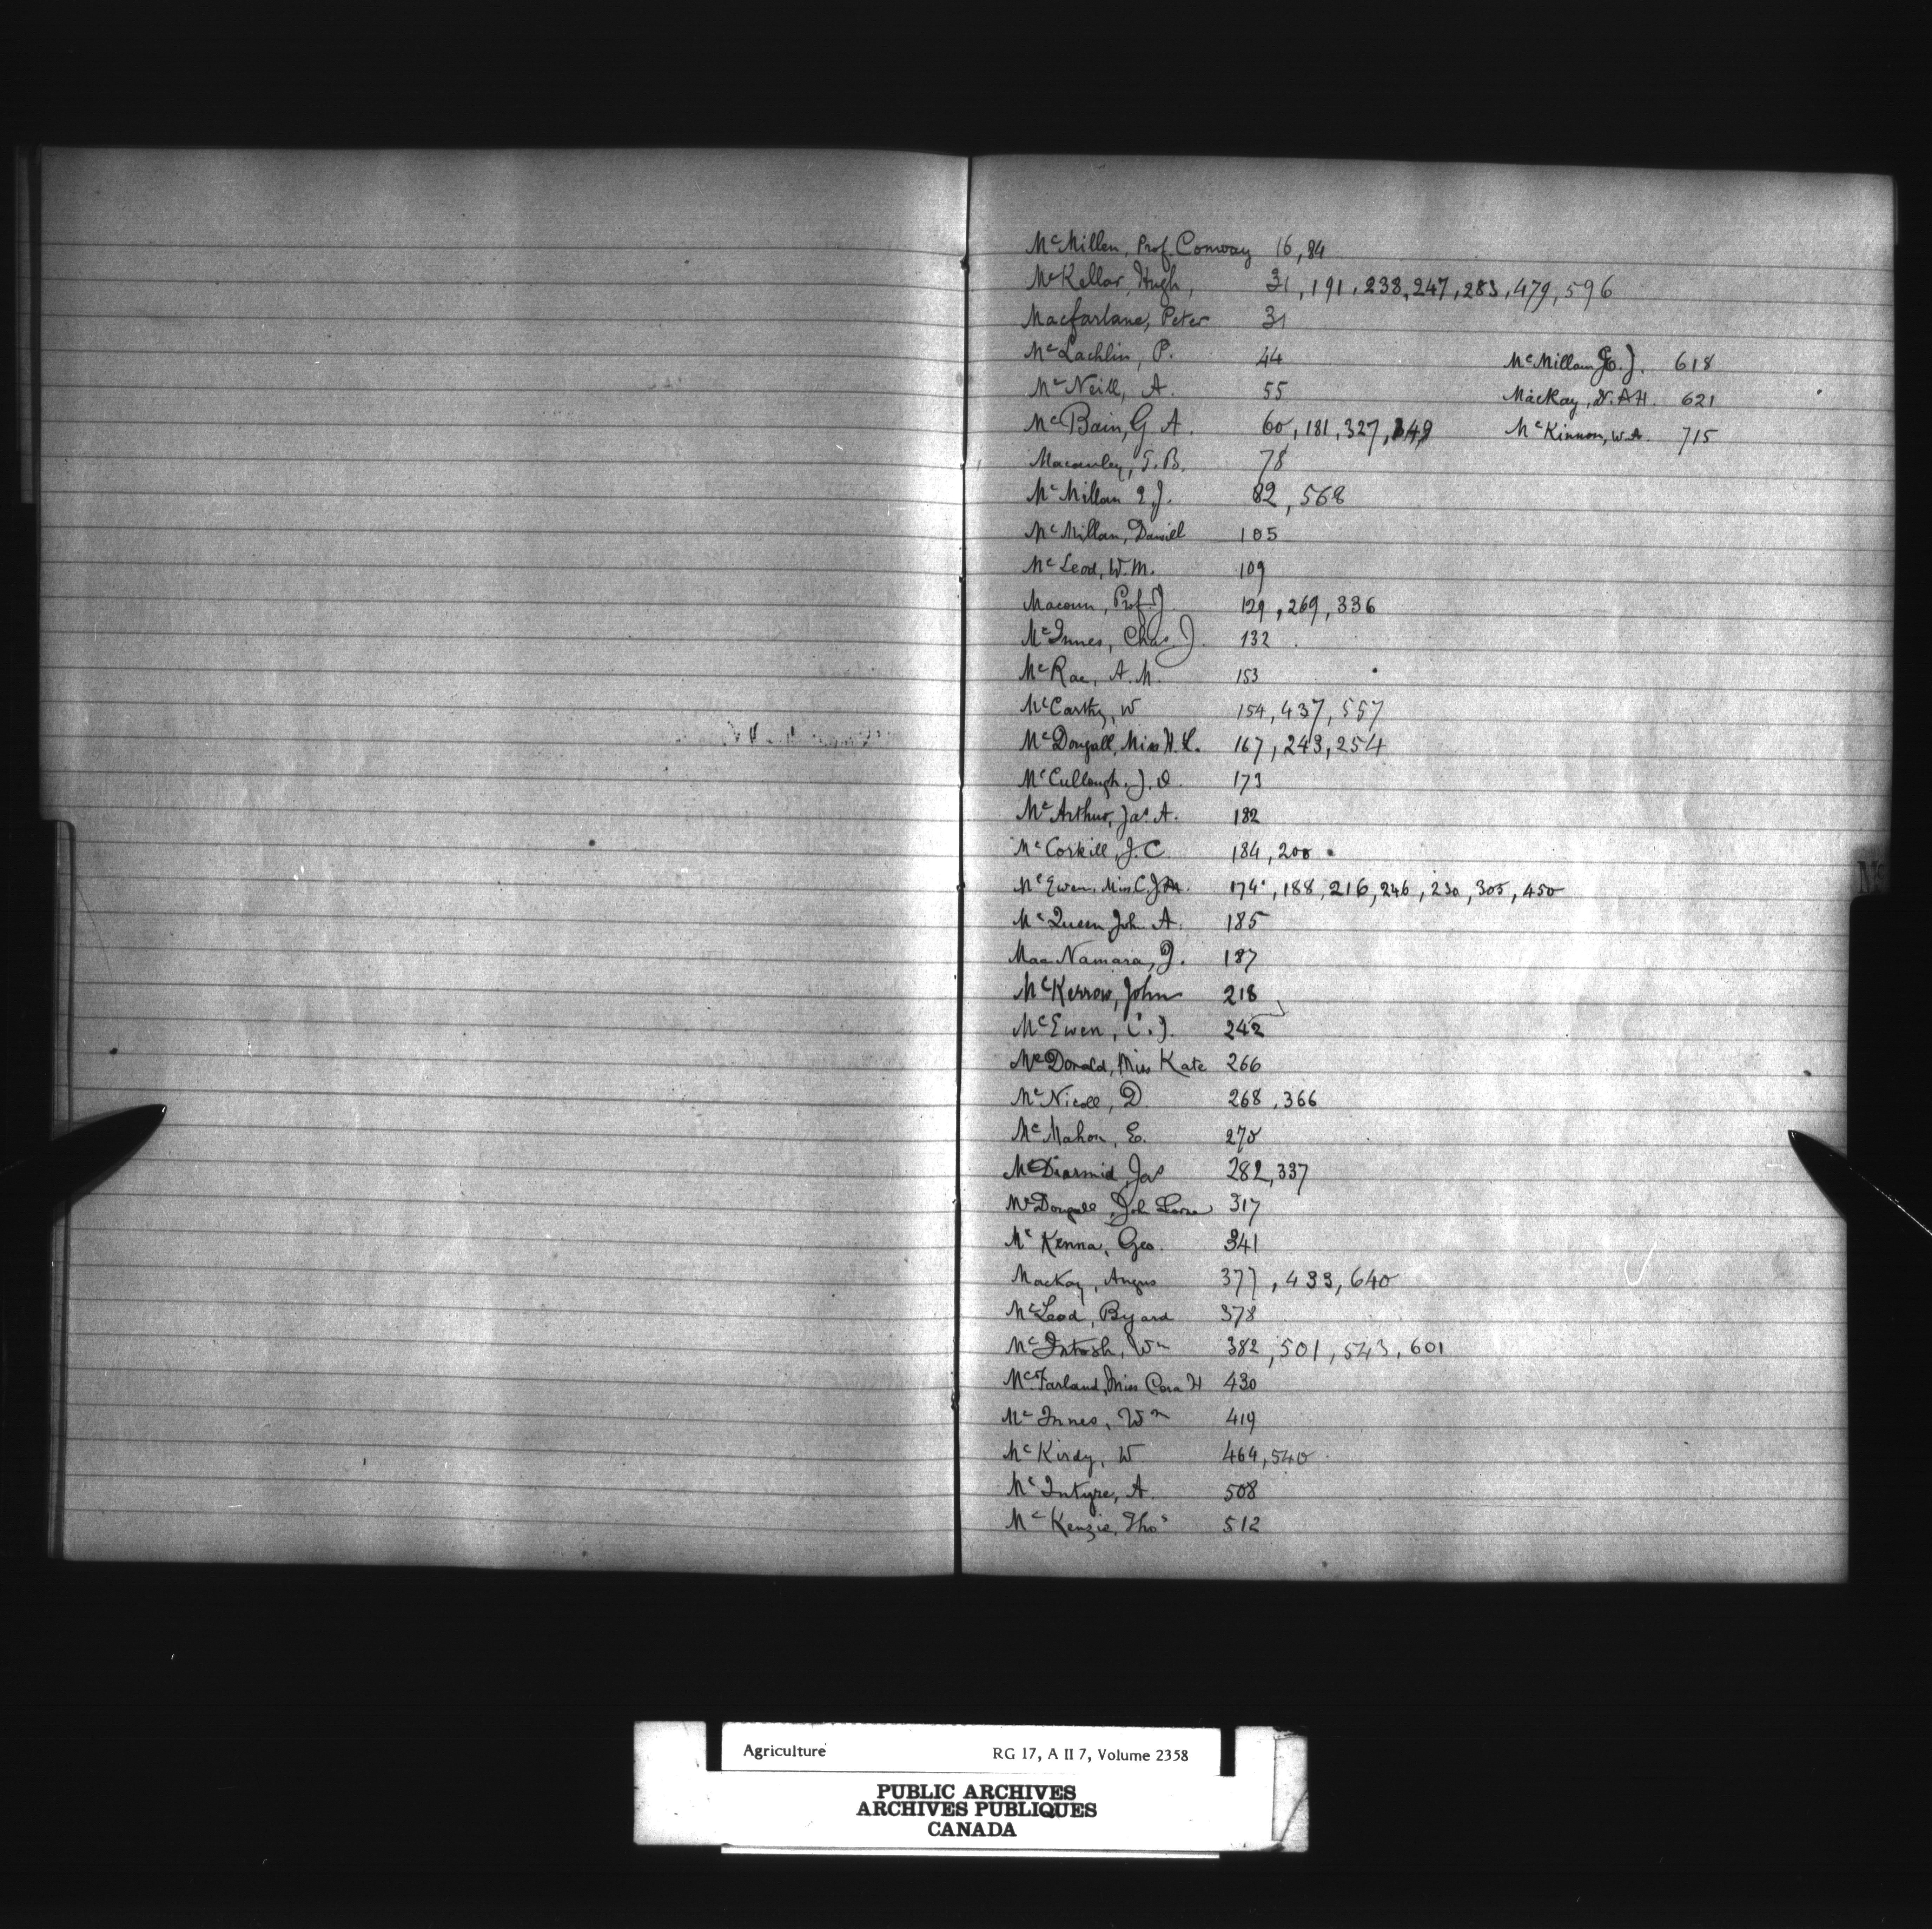 McMillen, Prof Conway 16, 84
McKellar, Hugh, 31, 191, 238, 247, 283, 479, 596
Macfarlane, Peter 31
McLachlin, P. 44
McNeill, A. 55
McBain, G A. 60, 181, 327, 349
Macauley, T. B. 78
McMillan J. 82, 568
McMillan, Daniel 105
McLeod, W. M. 109
Macoun, Prof J 129, 269, 336
McInnes, Chas. J. 132
McRae, A. M. 153
McCarthy, W 154, 437, 557
McDougall, Miss H. L. 167, 243, 254
McCullough, J. O. 173
McArthur, Jas A. 182
McCorkill, J. C 184, 200
McEwen, Miss C. J. M. 174, 188, 216, 246, 230, 305, 450
McQueen John A. 185
MacNamara, J. 187
McKerrow, John 218
McEwen, C. J. 242
McDonald, Miss Kate 266
McNicoll, D. 268, 366
McMahon, E. 270
McDiarmid, Jas 282, 337
McDougall, John Lorne 317
McKenna, Geo. 341
MacKay, Angus 377, 433, 640
McLeod, Byard 378
McIntosh, Wm 382, 501, 543, 601
McFarland, Miss Cora H 430
McInnes, Wm 419
McKirdy, W 464, 540
McIntyre, A. 508
McKenzie, Thos 512
McMillan J. 618
MacKay, A H. 621
McKinnon, W. A. 715
Agriculture RG 17, A II 7, Volume 2358
PUBLIC ARCHIVES
ARCHIVES PUBLIQUES
CANADA